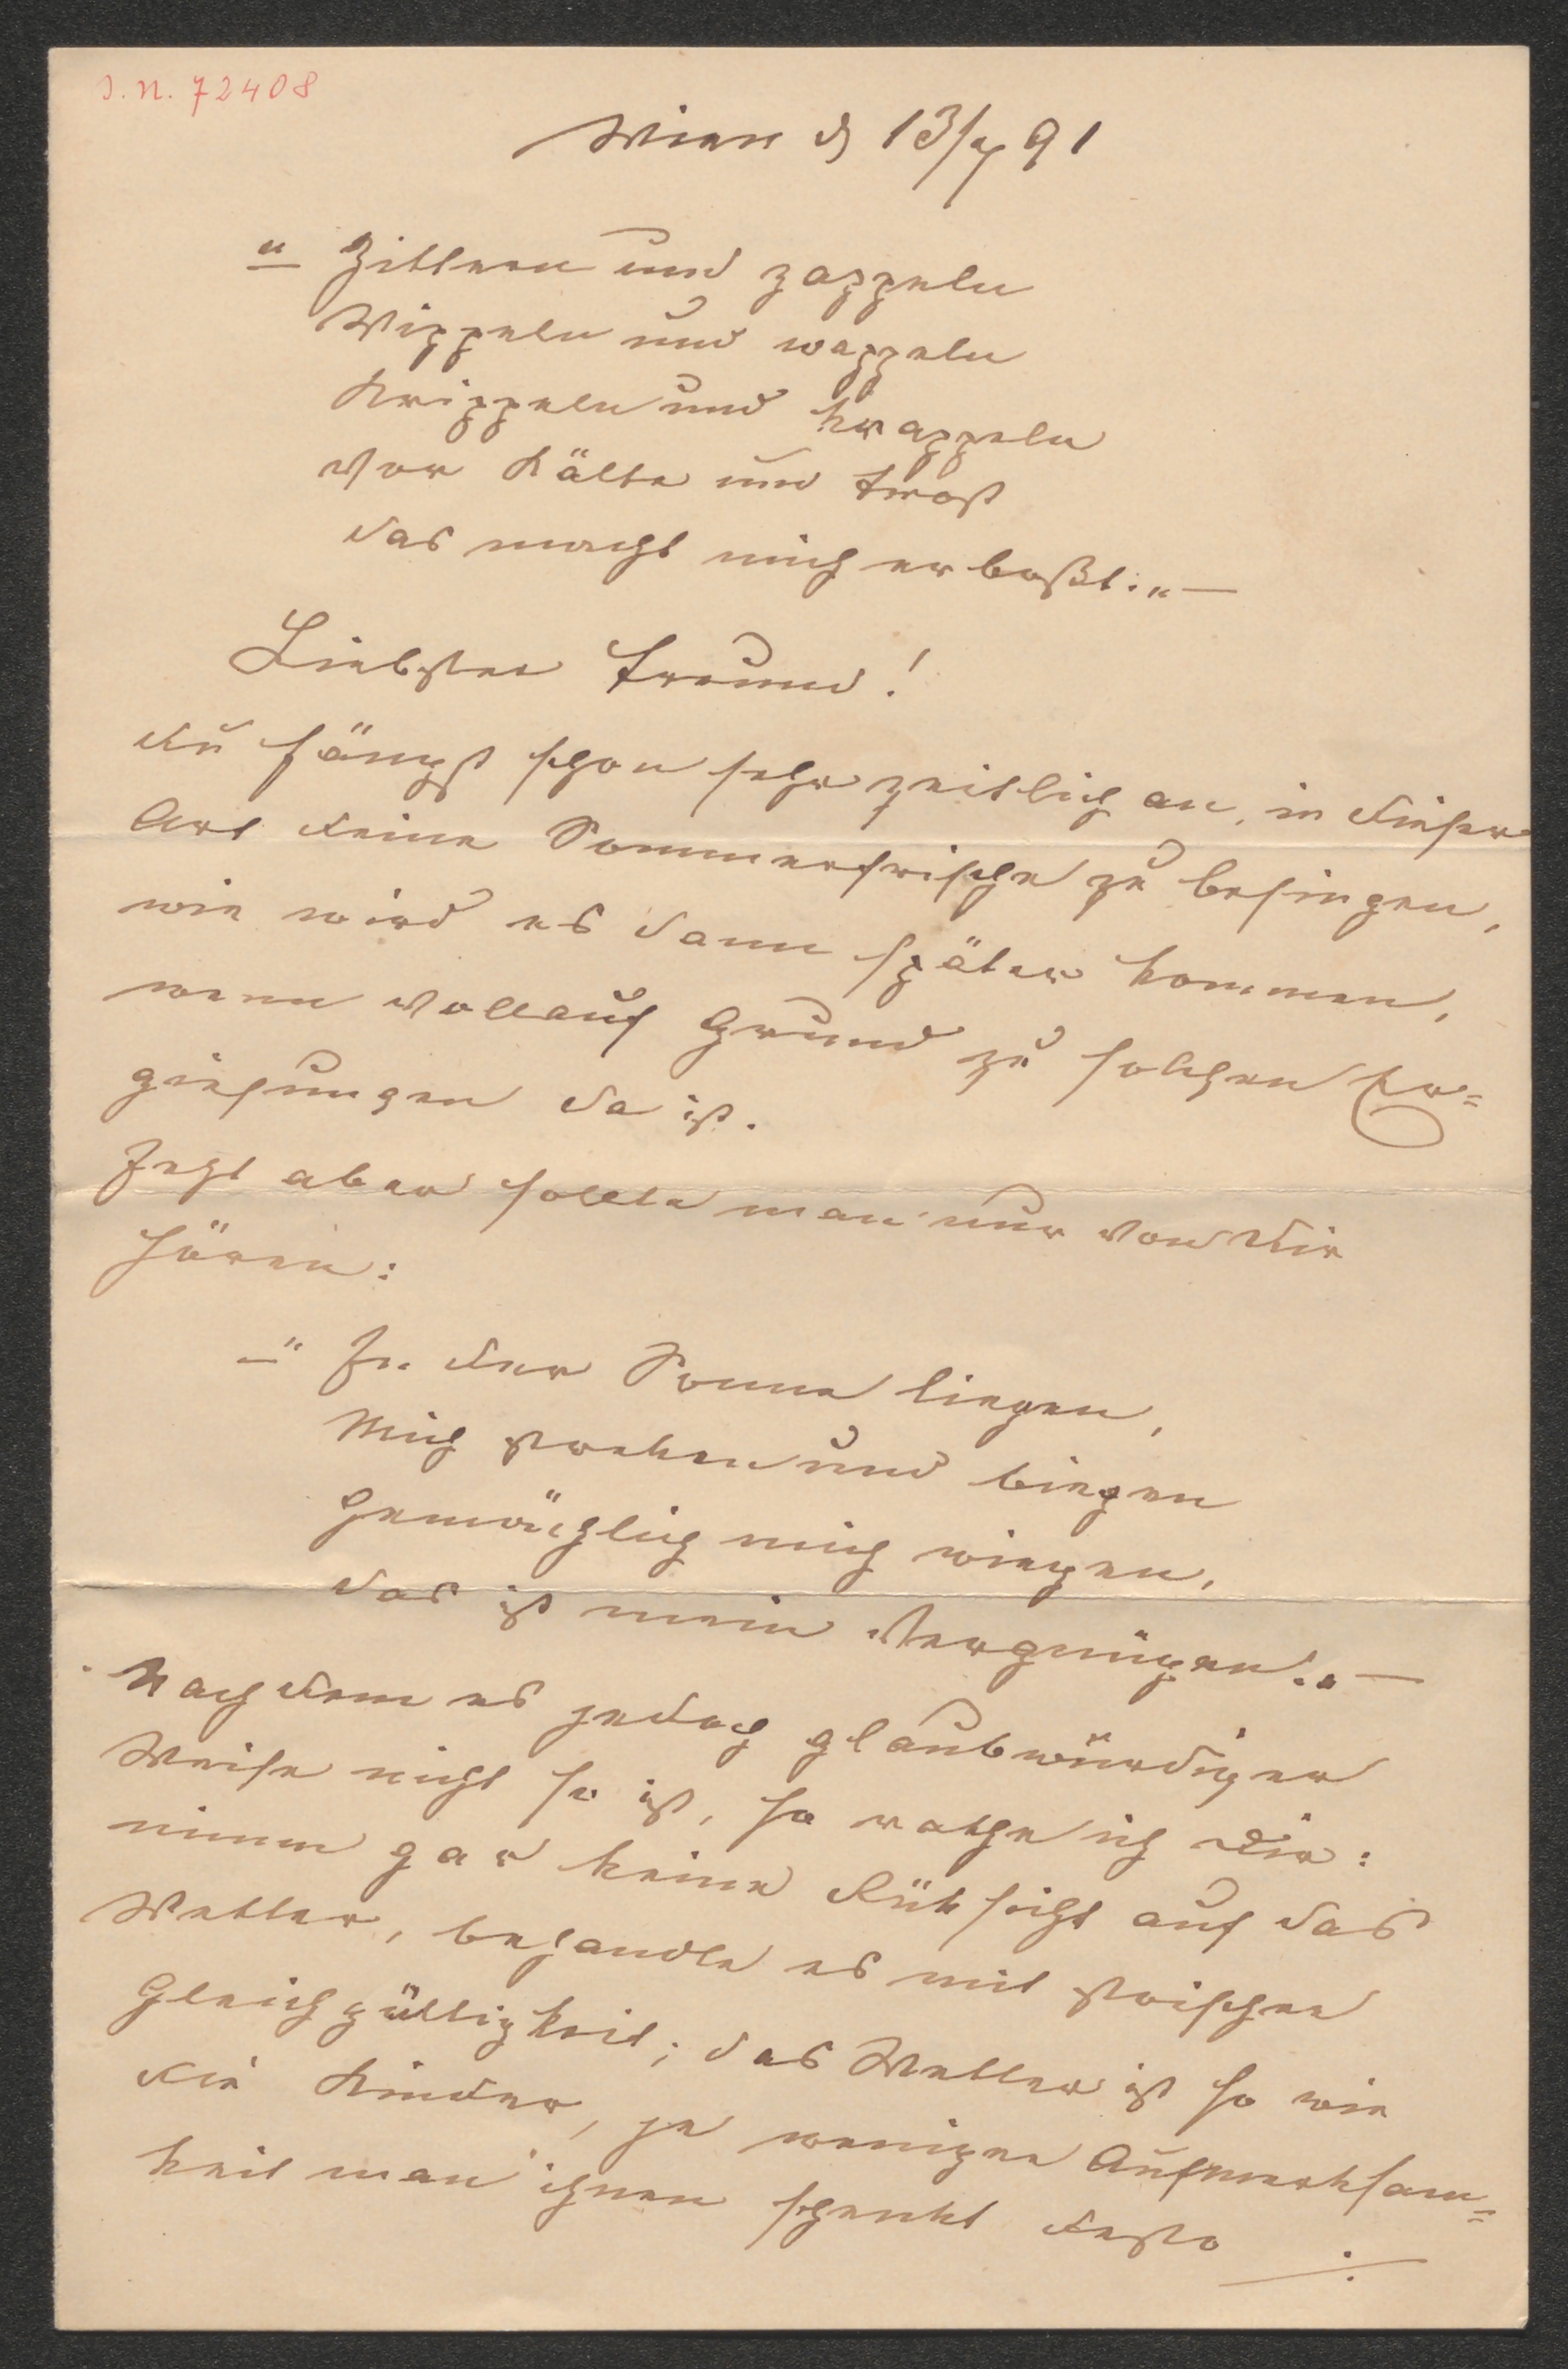 J. N. 72408
Wien d 13/7 91
" Zittern und zappeln
Wippeln und wappeln
Krippeln und krappeln
Vor Kälte und Frost
das macht mich erbost." —
Liebster Freund!
Du fängst schon sehr zeitlich an, in dieser
Art deine Sommerfrische zu besingen,
wie wird es dann später kommen,
wenn vollauf Grund zu solchen Er=
gießungen da ist.
Jetzt aber sollte man nur von Dir
hören:
—" In der Sonne liegen,
Mich strecken und biegen
Gemächlich mich wiegen,
das ist mein Vergnügen." —
Nachdem es jedoch glaubwürdiger
Weise nicht so ist, so rathe ich Dir:
nimm gar keine Rücksicht auf das
Wetter, behandle es mit stoischer
Gleichgültigkeit; das Wetter ist so wie
die Kinder, je weniger Aufmerksam=
keit man ihnen schenkt desto ./.